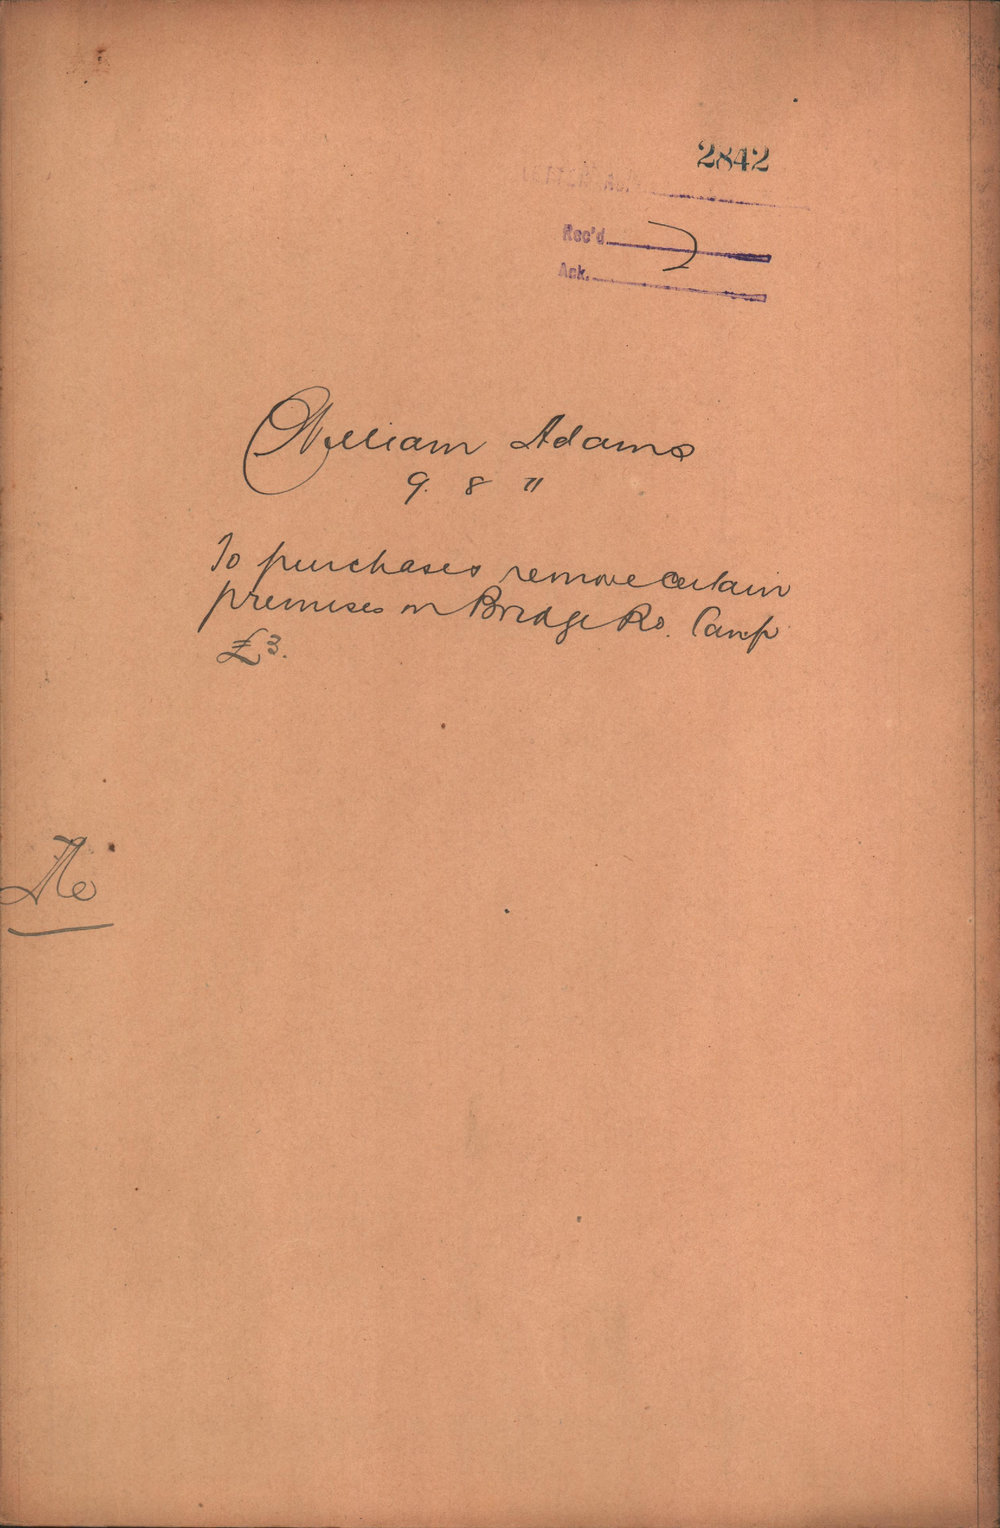 2842
LETTER No.
Rec'd
Ack.
William Adams
9. 8 11
To purchases remove certain
premises on Bridge Rd. Camp
£3.